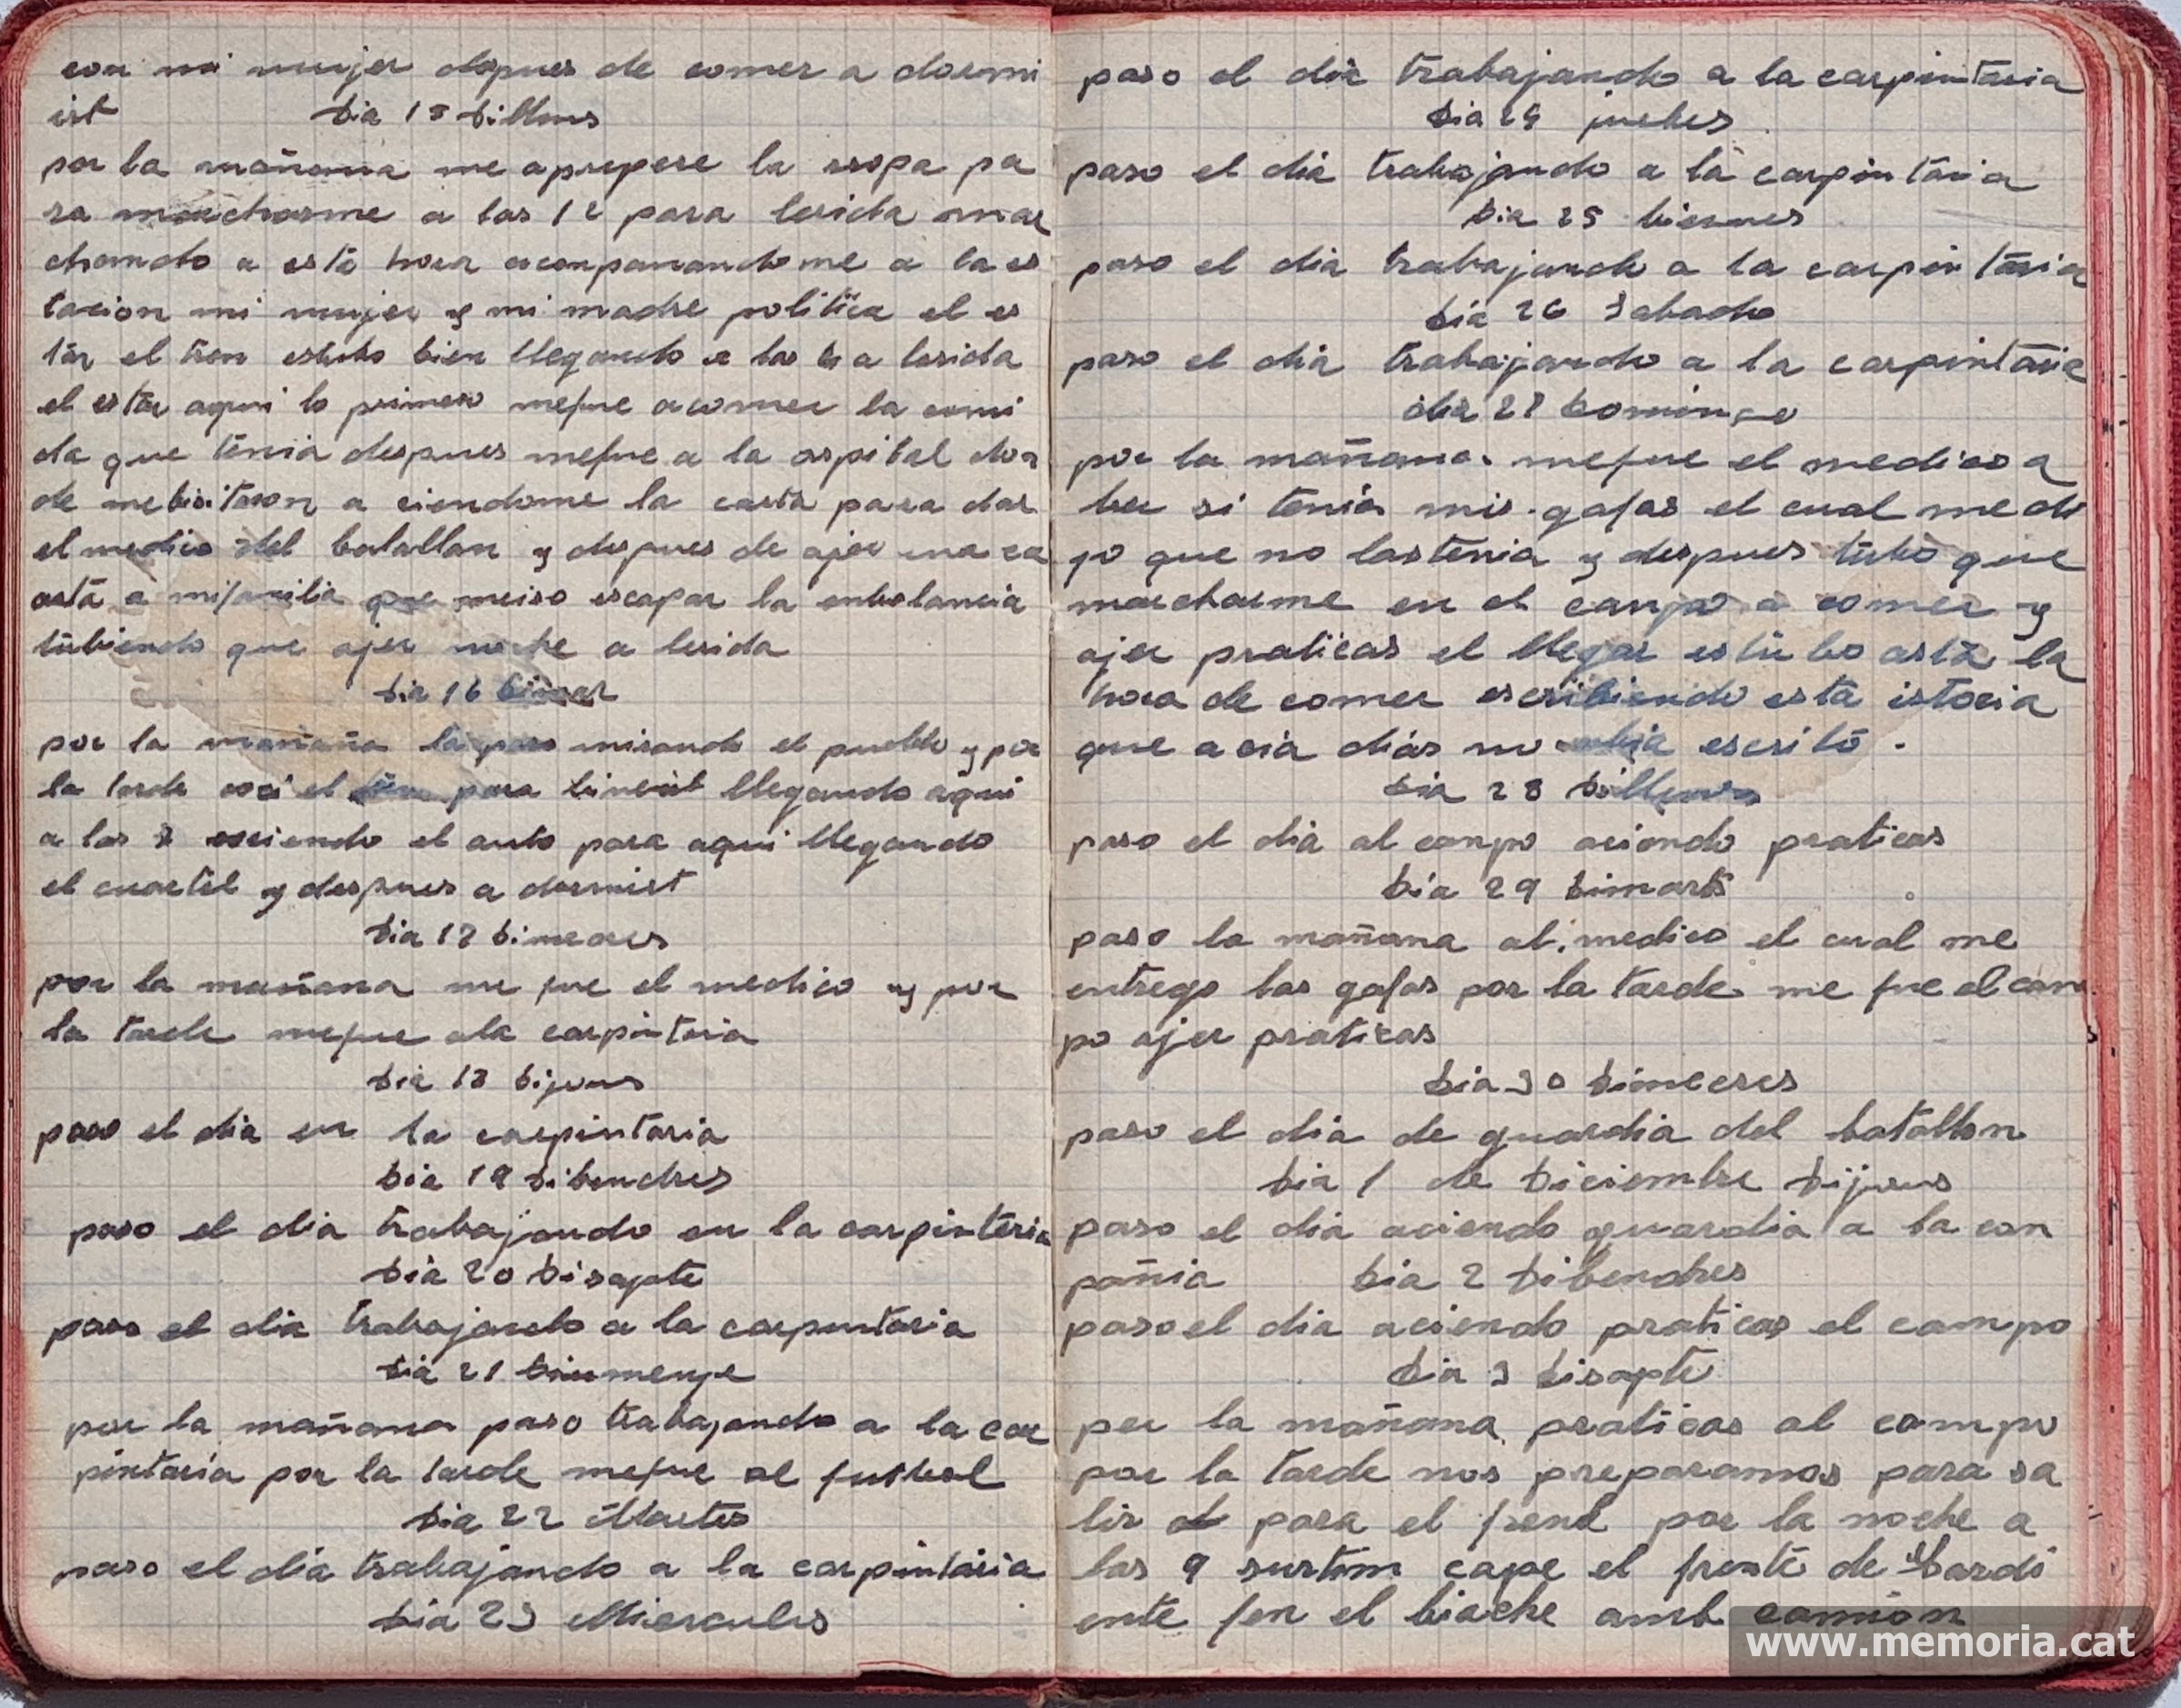 con mi mujer depues de comer a dormi
ist dia 15 dillons
por la mañana me aprepere la rropa pa
ra marcharme a las 12 para lerida mar
chando a esta hora aconpanandome a la es
tacion mi mujer y mi madre politica el es
tar el tren estubo bien llegando a las a lerida
el estar aqui lo primero mefue acomer la comi
da que tenia despues mefue a la ospital don
de mebisitaron a ciendome la carta para dar
el medico del batallon y despues de ajer una ca
arta a mifamilia que meiso escapar la enbolancia
tubiendo que ajer noche a lerida
dia 16
por la mañana la paso mirando el pueblo y por
la tarde coci el tren para llegando aqui
a las cociendo el auto para aqui llegando
el cuartel y despues a dormist
dia 17 dimecres
por la mañana me fue el medico y por
la tarde mefue ala carpintaria
dia 18 dijous
paso el dia en la carpintaria
dia 19 dibendres
paso el dia trabajando en la carpinteria
dia 20 disapte
paso el dia trabajando a la carpintaria
dia 21 diumenge
por la mañana paso trabajando a la car
pintaria por la tarde mefue al futbol
dia 22 Martes
paso el dia trabajando a la carpintaria
dia 23 Miercules
paso el dia trabajando a la carpintaria
dia 24 juebes
paso el dia trabajando a la carpintaria
dia 25 biernes
paso el dia trabajando a la carpintaria
dia 26 Sabado
paso el dia trabajando a la carpintaria
dia 27 Domingo
por la mañana mefue el medico a
ber si tenia mis gafas el cual me di
jo que no lastenia y despues tubo que
marcharme en el canpo a comer y
ajer praticas el llegar estubo asta la
hora de comer escribiendo esta istoria
que acia dias no abia escrito .
dia 28 dilluns
paso el dia al canpo aciendo praticas
dia 29 dimarts
paso la mañana al medico el cual me
entrego las gafas por la tarde me fue al can
po ajer praticas
dia 30 dimecres
paso el dia de guardia del batallon
dia 1 de Diciembre dijous
paso el dia aciendo guardia a la con
pañia dia 2 dibendres
paso el dia aciendo praticas el campo
dia 3 disapte
per la mañana praticas al campo
por la tarde nos preparamos para sa
lir para el frent por la noche a
las 9 surtim cape el frente de Sardi
ente fen el biache amb camion
www.memoria.cat